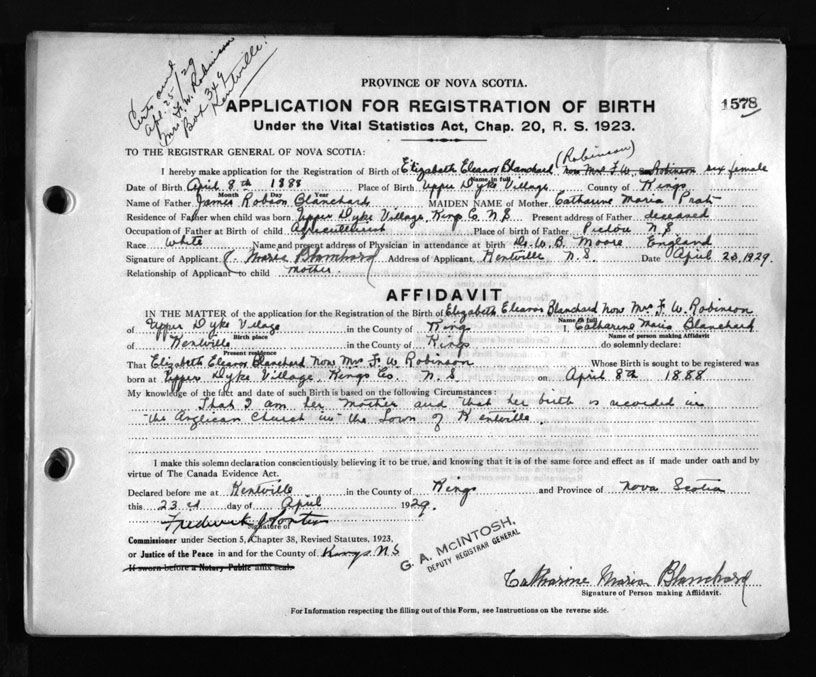 Certs and
Apl. 25/29
Mrs F. W. Robinson
Box 349
Kentville
PROVINCE OF NOVA SCOTIA.
APPLICATION FOR REGISTRATION OF BIRTH
1578
Under the Vital Statistics Act, Chap. 20, R. S. 1923.
TO THE REGISTRAR GENERAL OF NOVA SCOTIA:
(Robinson)
I hereby make application for the Registration of Birth of Elizabeth Eleanor Blanchard now Mrs F. W. Robinson sex female
Name in full
Date of Birth April 8th 1888 Place of Birth Upper Dyke Village County of Kings
Month Day Year
Name of Father James Robson Blanchard MAIDEN NAME of Mother Catharine Maria Pratt
Residence of Father when child was born Upper Dyke Village, Kings Co. N.S. Present address of Father deceased
Occupation of Father at Birth of child Agriculturist Place of birth of Father Pictou N.S
Race White Name and present address of Physician in attendance at birth Dr. W. B. Moore England
Signature of Applicant C. Maria Blanchard Address of Applicant Kentville N.S. Date April 23, 1929.
Relationship of Applicant to child mother.
AFFIDAVIT
IN THE MATTER of the application for the Registration of the Birth of Elizabeth Eleanor Blanchard Now Mrs F. W. Robinson
Name in full
of Upper Dyke Village in the County of King I, Catharine Maria Blanchard
Birth place Name of person making Affidavit
of Kentville in the County of Kings do solemnly declare:
Present residence
That Elizabeth Eleanor Blanchard Now Mrs F. W. Robinson Whose Birth is sought to be registered was
born at Upper Dyke Village, Kings Co. N.S. on April 8th 1888
My knowledge of the fact and date of such Birth is based on the following Circumstances:
That I am her Mother and that her birth is recorded in
the Anglican Church in the Town of Kentville.
I make this solemn declaration conscientiously believing it to be true, and knowing that it is of the same force and effect as if made under oath and by
virtue of The Canada Evidence Act.
Declared before me at Kentville in the County of Kings and Province of Nova Scotia
this 23rd day of April 1929.
Frederick
Signature of
Commissioner under Section 5, Chapter 38, Revised Statutes, 1923,
or Justice of the Peace in and for the County of Kings N.S
If sworn before a Notary Public affix seal.
G. A. McINTOSH,
DEPUTY REGISTRAR GENERAL
Catharine Maria Blanchard
Signature of Person making Affidavit.
For Information respecting the filling out of this Form, see Instructions on the reverse side.